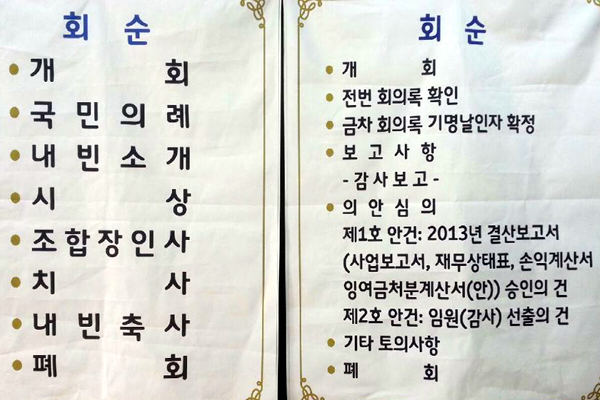 회 순
개 회
국 민 의 례
내 빈 소 개
시 상
조 합 장 인 사
치 사
내 빈 축 사
폐 회
회 순
개 회
전번 회의록 확인
금차 회의록 기명날인자 확정
보 고 사 항
- 감 사 보 고 -
의 안 심 의
제1호 안건: 2013년 결산보고서
(사업보고서, 재무상태표, 손익계산서
잉여금처분계산서(안)) 승인의 건
제2호 안건: 임원(감사) 선출의 건
기타 토의사항
폐 회